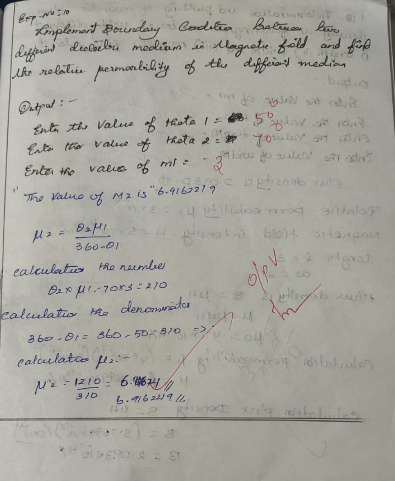 Exp-No:-10
Implement Boundary Condition between two
different dielectric medium in Magnetic field and find
the relative permeability of the different median
Output :-
Enter the Value of theta 1 = 50
Enter the value of theta 2 = 70
Enter the value of m1 = 3
"The Value of M2 is" 6.9162219
μ2 = θ2μ1 / 360-θ1
calculation the number
θ2 x μ1 - 70 x 3 = 210
calculation the denominator
360 - θ1 = 360 - 50 = 310 =>
calculation μ2 :-
μ2 - 1210 / 310 =
6.9162219 //
O/P V